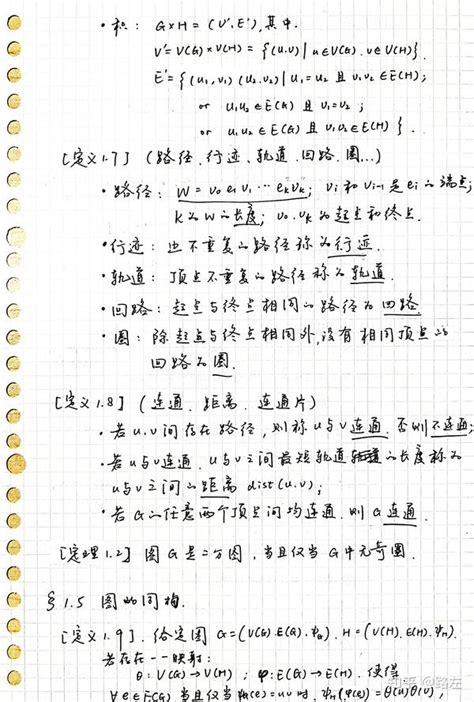 · 积: G×H = (V', E'), 其中.
V' = V(G)×V(H) = {(u,v) | u∈V(G), v∈V(H)}
E' = {(u₁,v₁)(u₂,v₂) | u₁=u₂ 且 v₁v₂∈E(H);
or u₁u₂∈E(G) 且 v₁=v₂ ;
or u₁u₂∈E(G) 且 v₁v₂∈E(H) }.
[定义1.7] (路径、行迹、轨道、回路、圈...)
· 路径: W = v₀e₁v₁…eₖvₖ; vᵢ和vᵢ₋₁是eᵢ的端点;
k为W的长度; v₀,vₖ为起点和终点.
· 行迹: 边不重复的路径称为行迹.
· 轨道: 顶点不重复的路径称为轨道.
· 回路: 起点与终点相同的路径为回路.
· 圈: 除起点与终点相同外,没有相同顶点的
回路为圈.
[定义1.8] (连通、距离、连通片)
· 若u,v间存在路径, 则称u与v连通, 否则不连通;
· 若u与v连通, u与v之间最短轨道的长度称为
u与v之间的距离 dist(u,v);
· 若G的任意两个顶点间均连通, 则G连通.
[定理1.2] 图G是二分图, 当且仅当G中无奇圈.
§1.5 图的同构.
[定义1.9]. 给定图G=(V(G),E(G),ψG), H=(V(H),E(H),ψH).
若存在一一映射:
θ: V(G)→V(H) ; φ: E(G)→E(H), 使得
∀e∈E(G) 当且仅当 ψG(e)=uv时, ψH(φ(e))=θ(u)θ(v),
知乎 @路左